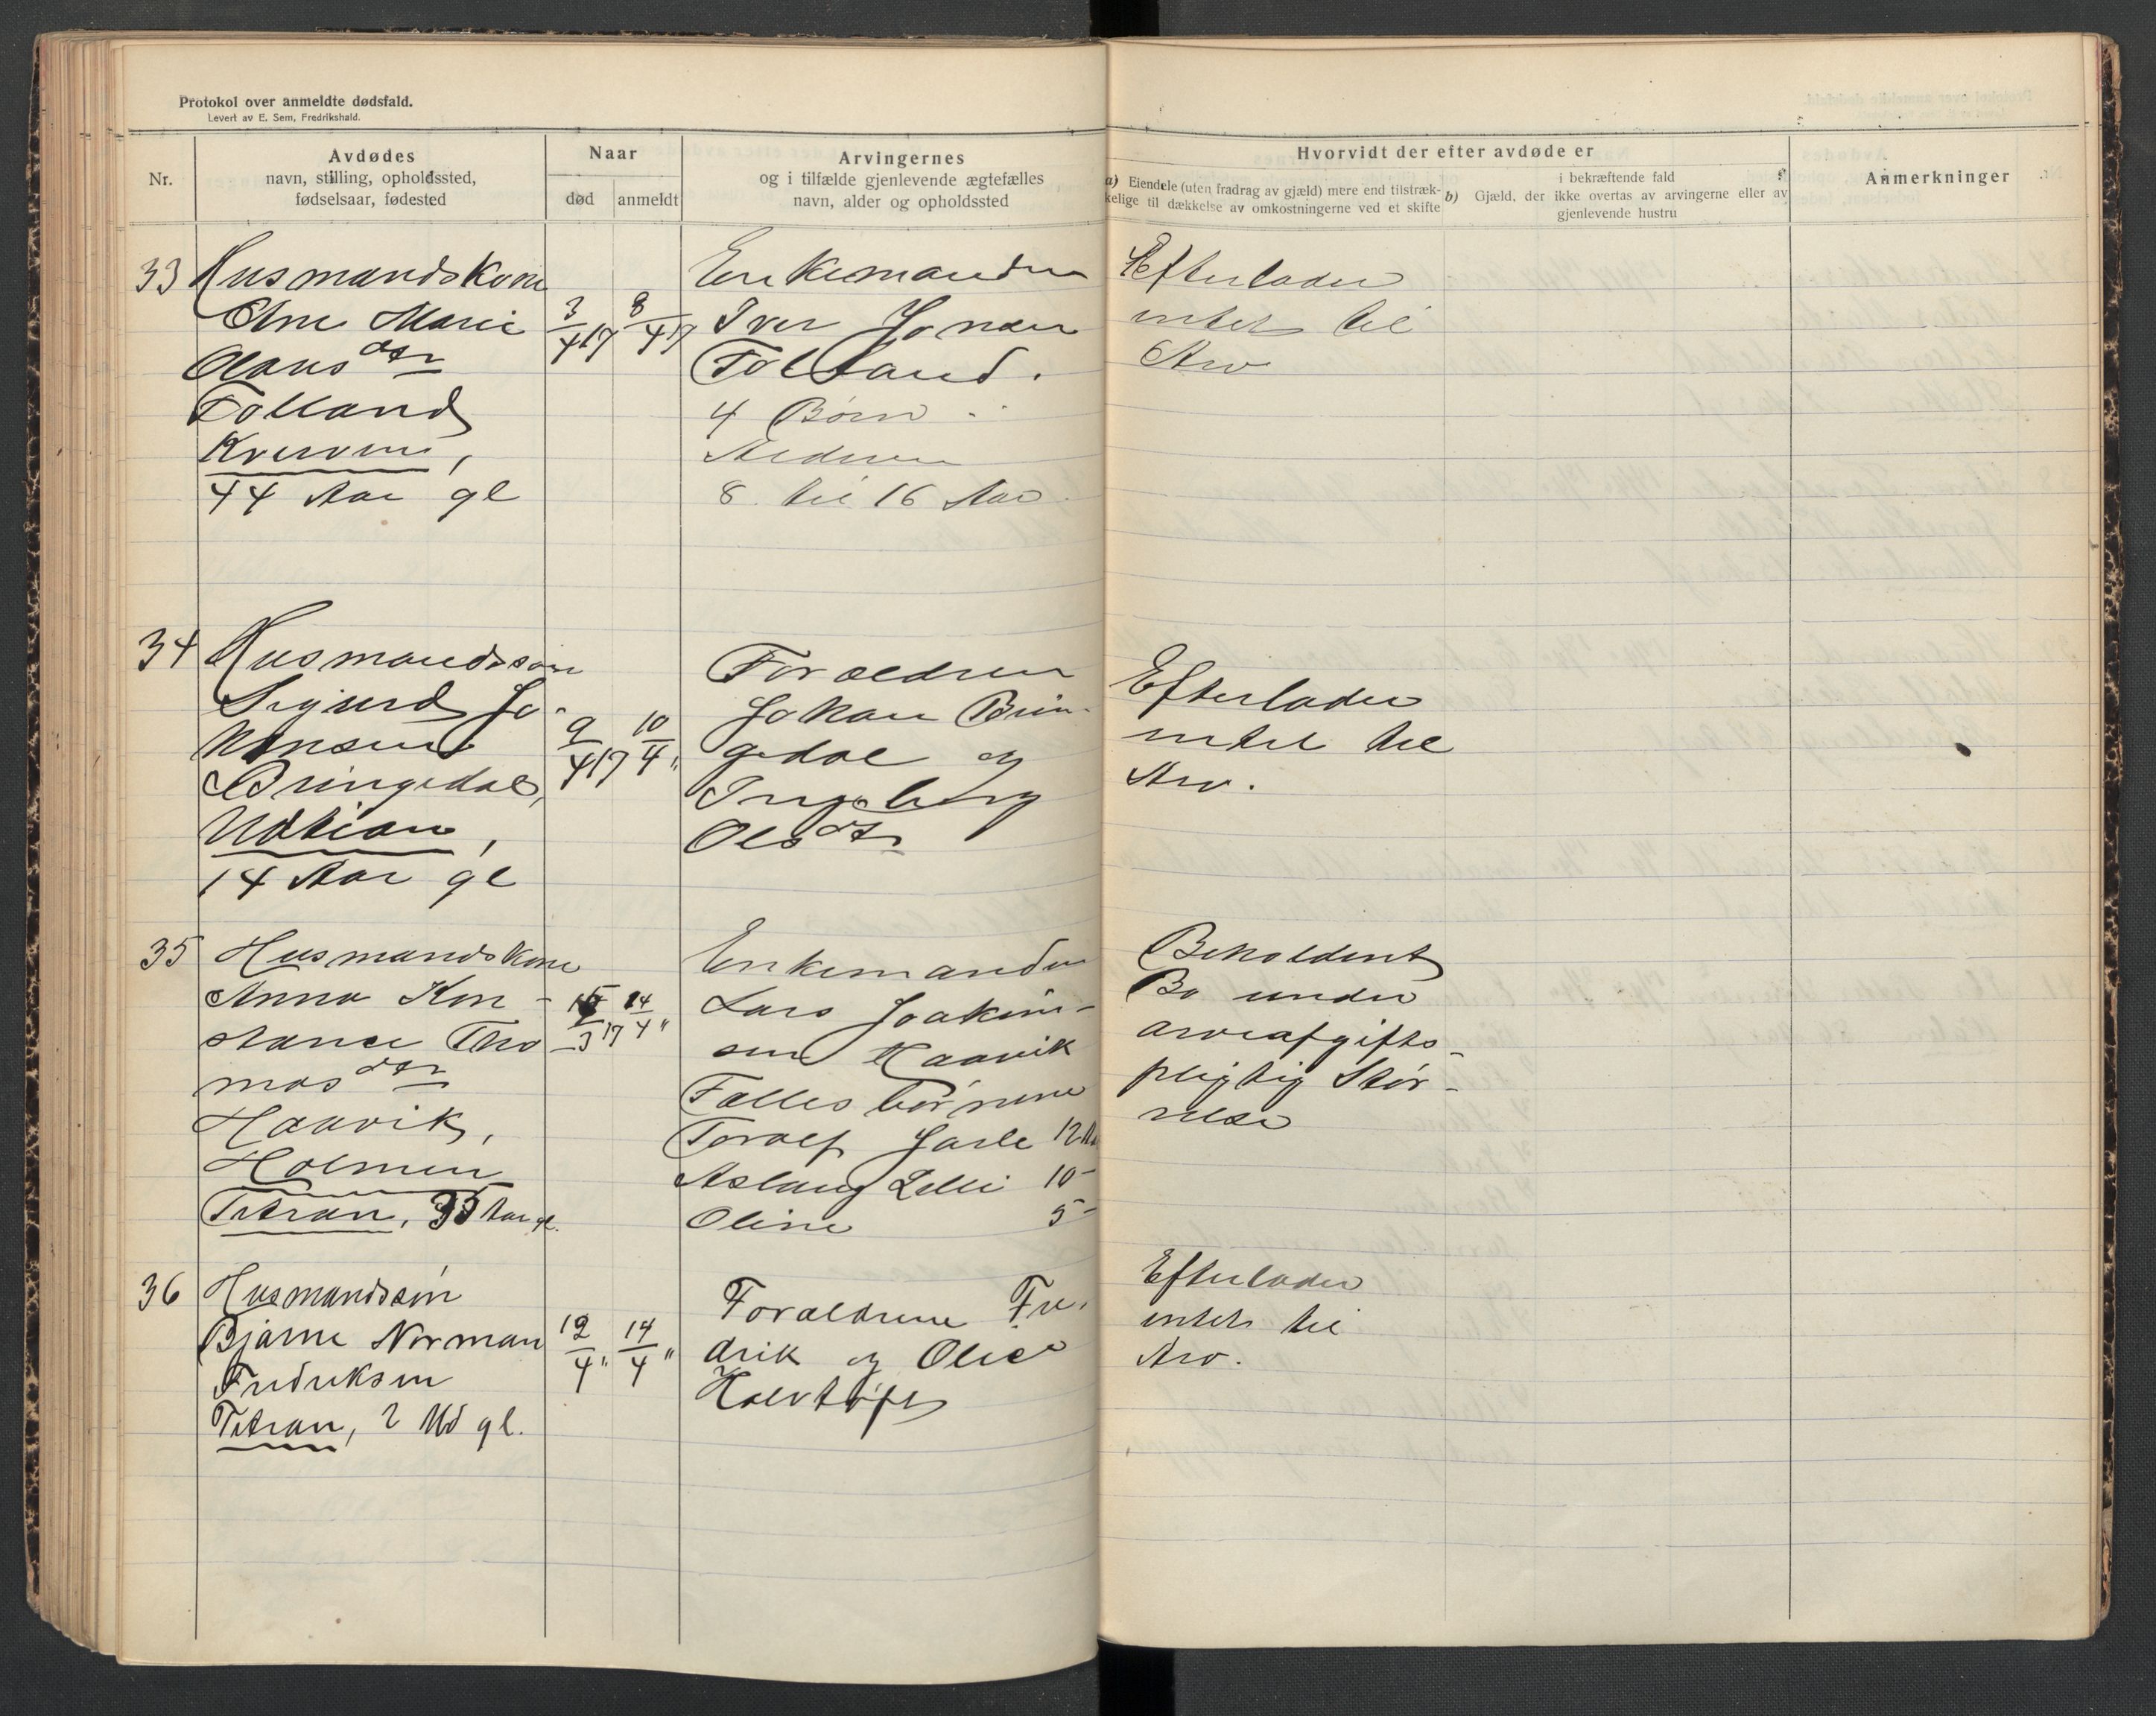 Protokol over anmeldte dødsfald.
Levert av E. Sem, Fredrikshald.
Nr.
Avdødes
navn, stilling, opholdssted,
fødselsaar, fødested
Naar
død
anmeldt
Arvingernes
og i tilfælde gjenlevende ægtefælles
navn, alder og opholdssted
Hvorvidt der efter avdøde er
a) Eiendele (uten fradrag av gjæld) mere end tilstræk-
kelige til dækkelse av omkostningerne ved et skifte
i bekræftende fald
b) Gjæld, der ikke overtas av arvingerne eller av
gjenlevende hustru
Anmerkninger
33 Husmandskone
Ane Marie
Olausdtr
Tolland
Kverven,
44 Aar gl
3/4 17
8/4 17
Enkemanden
Iver Jonsen
Tolland.
4 Børn
Alderen
8 til 16 Aar
Efterlader
intet til
Arv
34 Husmandssøn
Sigurd Jo-
hansen
Bringedal,
Ustian,
14 Aar gl
9/4 17
10/4 "
Forældrene
Johan Brin-
gedal og
Ingeborg
Olsdtr
Efterlader
intet til
Arv.
35 Husmandskone
Anna Kon-
stance Tho
masdtr
Haavik,
Holmen
Titran, 35 Aar gl.
/3 17
14/4 "
Enkemanden
Lars Joakim-
sen Haavik
Fælles børnene
Toralf Jarle 12 Aar
Aslaug Lilli 10 -
Oline 5 -
Beholdent
Bo under
arveafgifts-
pligtig Stør-
relse
36 Husmandssøn
Bjarne Norman
Fredriksen
Titran, 2 Md gl.
12/4 "
14/4 "
Forældrene Fre-
drik og Olise
Efterlader
intet til
Arv.